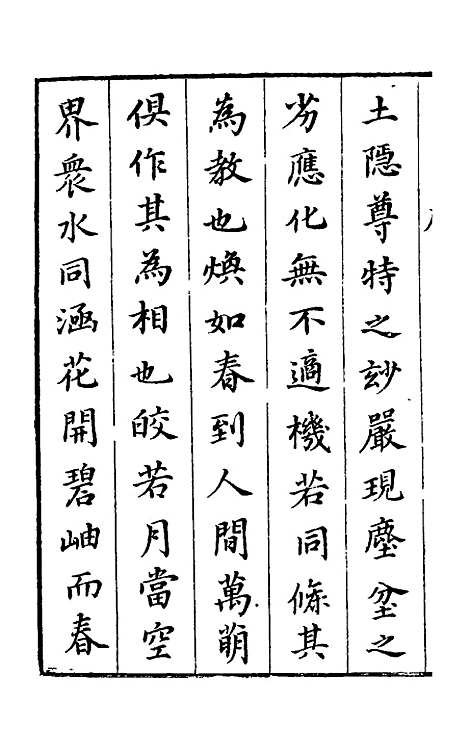 土隱尊特之玅嚴現塵坌之
劣應化無不適機若同條其
為教也煥如春到人間萬萌
俱作其為相也皎若月當空
界衆水同涵花開碧岫而春